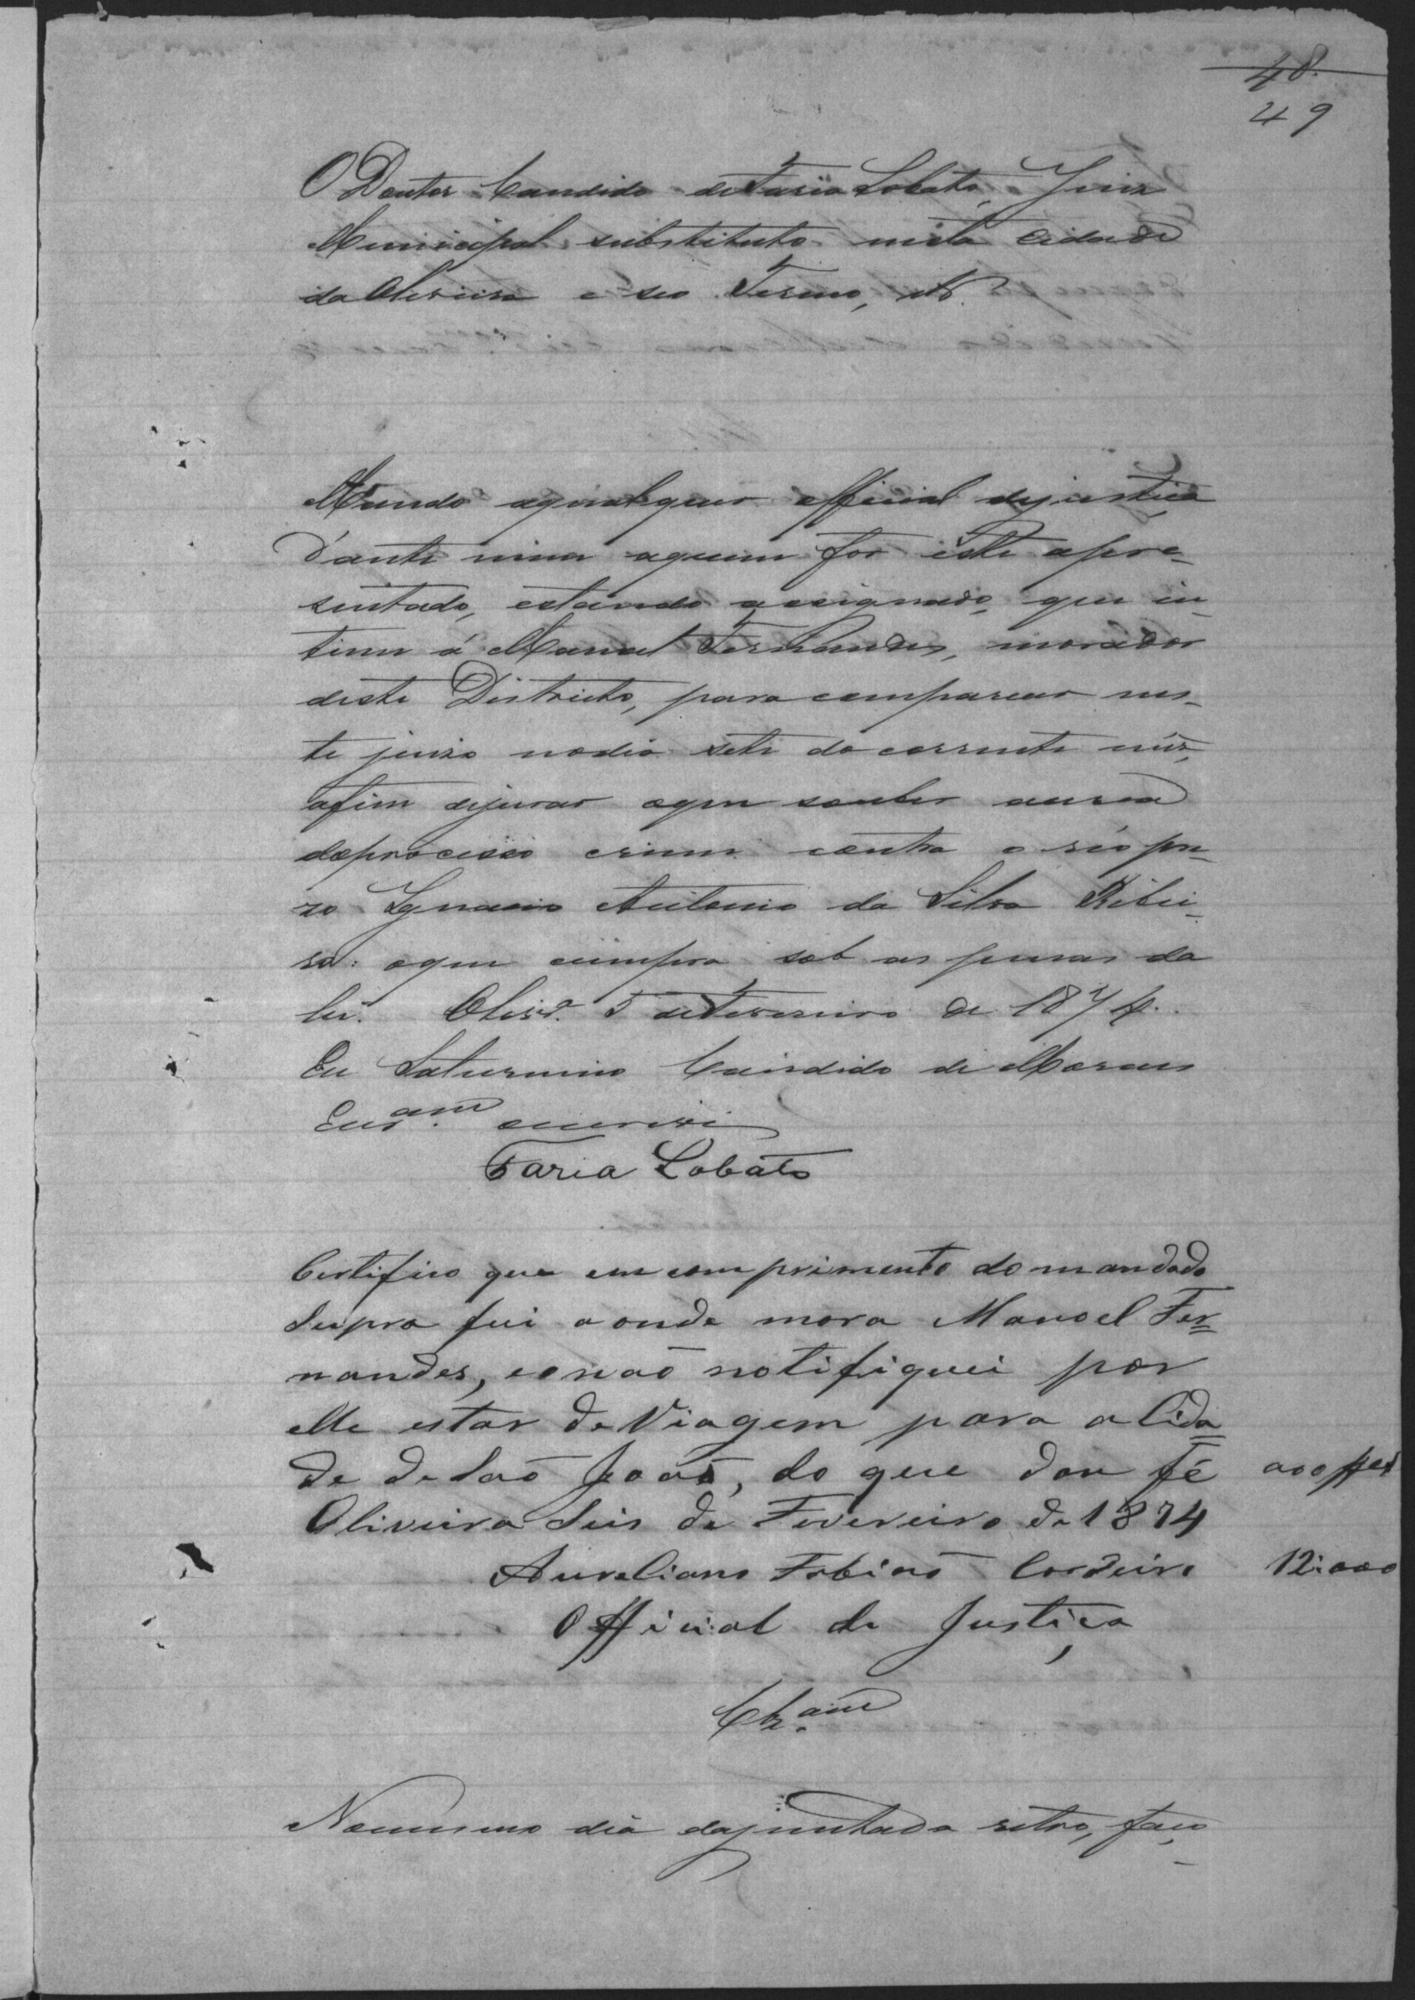 48.
49
O Doutor Candido de Faria Lobato, Juiz
Municipal substituto nesta Cidade
da Oliveira e seo Termo, etc.
Mando aqualquer official dejustiça
d'ante mim aquem for este apre-
sentado, estando assignado, que in-
time á Manoel Fernandes, morador
deste Districto, para comparecer nes-
te juizo nodia sete do corrente mêz,
afim dejurar oque souber acerca
doprocesso crime contra o réo pre-
zo Ignacio Antonio da Silva Ribei-
ro: oque cumpra sob as penas da
lei. Olivrª. 5 de Fevereiro de 1874.
Eu Saturnino Candido de Moraes
Escram. escrevi
Faria Lobato
Certifico que em comprimento do mandado
Supra fui aonde mora Manoel Fer=
nandes, eonaõ notifiquei por
elle estar de Viagem para a Cida=
de de Saõ Joaõ, do que dou fé
Oliveira Seis de Fevereiro de 1874
Aureliano Fabiaõ Cordeiro
12:000
Official de Justiça
Nomesmo dia dajuntada retro, faço